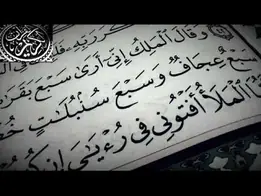 ذِكْرَ رَبِّهِۦ فَلَبِ
وَقَالَ ٱلْمَلِكُ إِنِّىٓ أَرَىٰ سَبْعَ بَقَرَ
سَبْعٌ عِجَافٌ وَسَبْعَ سُنۢبُلَٰتٍ خُضْ
ٱلْمَلَأُ أَفْتُونِى فِى رُءْيَٰىَ إِن كُنتُ